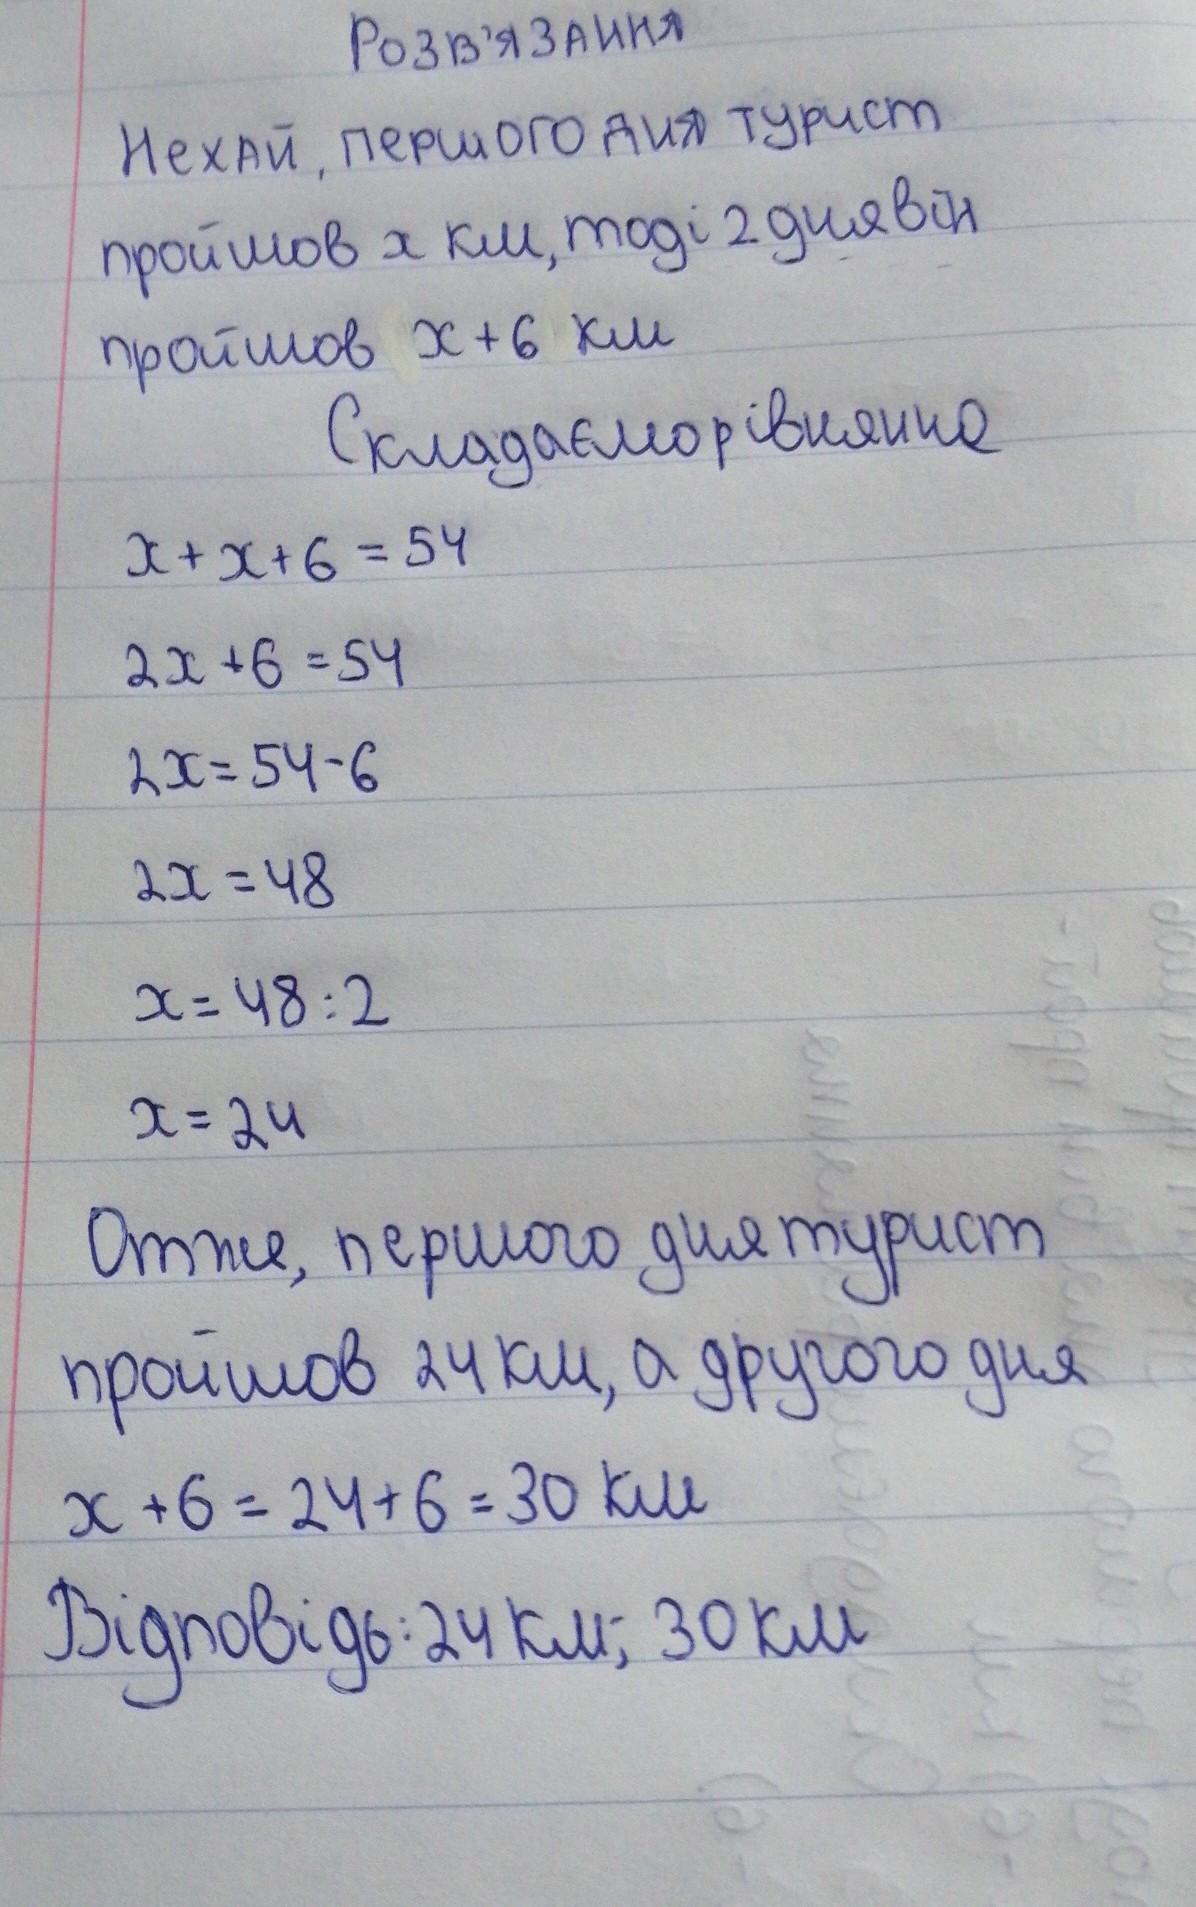 Розв'язання
Нехай, першого дня турист
пройшов x км, тоді 2 дня він
пройшов x+6 км
Складаємо рівняння
x+x+6=54
2x+6=54
2x=54-6
2x=48
x=48:2
x=24
Отже, першого дня турист
пройшов 24 км, а другого дня
x+6=24+6=30 км
Відповідь: 24 км; 30 км